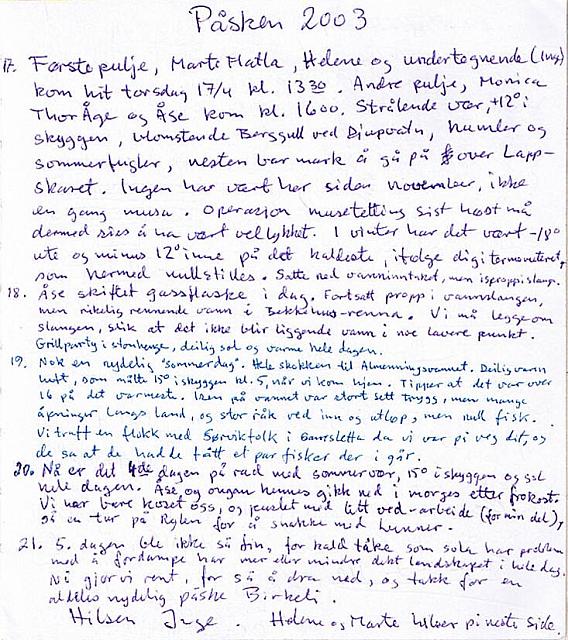 Påsken 2003
17. Første pulje, Marte Matla, Helene og undertegnende (Inge)
kom hit torsdag 17/4 kl. 13 30. Andre pulje, Monica
Thor Åge og Åse kom kl. 1600. Strålende vær, +12° i
skyggen, blomstende Berggull ved Djupvatn, humler og
sommerfugler, nesten bar mark å gå på over Lapp-
skaret. Ingen har vært her siden november, ikke
en gang musa. Operasjon musetetting sist høst må
dermed sies å ha vært vellykket. I vinter har det vært -18°
ute og minus 12° inne på det kaldeste, ifølge digitermometeret,
som hermed nullstilles. Satte ned vanninntaket, men isproppislang.
18. Åse skiftet gassflaske i dag. Fortsatt propp i vannslangen,
men rikelig rennende vann i Bekkehus-renna. Vi må legge om
slangen, slik at det ikke blir liggende vann i noe lavere punkt.
Grillparty i stonhenge, deilig sol og varme hele dagen.
19. Nok en nydelig "sommerdag". Hele skokken til Almenningsvannet. Deilig varm
luft, som målte 15° i skyggen kl. 5, når vi kom hjem. Tipper at det var over
16 på det varmeste. Isen på vannet var stort sett trygg, men mange
åpninger langs land, og stor råk ved inn og utløp, men null fisk.
Vi traff en flokk med Sørvikfolk i Gaursletta da vi var på veg dit, og
de sa at de hadde fått et par fisker der i går.
20. Nå er det 4de dagen på rad med sommervær, 15° i skyggen og sol
hele dagen. Åse og ungan hennes gikk ned i morges etter frokost.
Vi har bare koset oss, og puslet med litt ved-arbeide (for min del),
gå en tur på for å snakke med henner.
21. 5. dagen ble ikke så fin, for kald tåke som sola har problem
med å fordampe har mer eller mindre dekt landskapet i hele dag.
Nå gjør vi rent, for så å dra ned, og takk for en
aldeles nydelig påske Birkeli.
Hilsen Inge. Helene og Marte hilser på neste side.